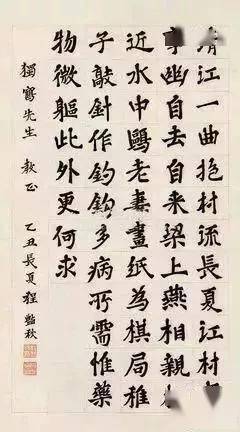 清江一曲抱村流長夏江村
事幽自去自来梁上燕相親
近水中鷗老妻畫紙為棋局稚
子敲針作釣鈎多病所需惟藥
物微軀此外更何求
先生 教正 乙丑長夏程豔秋